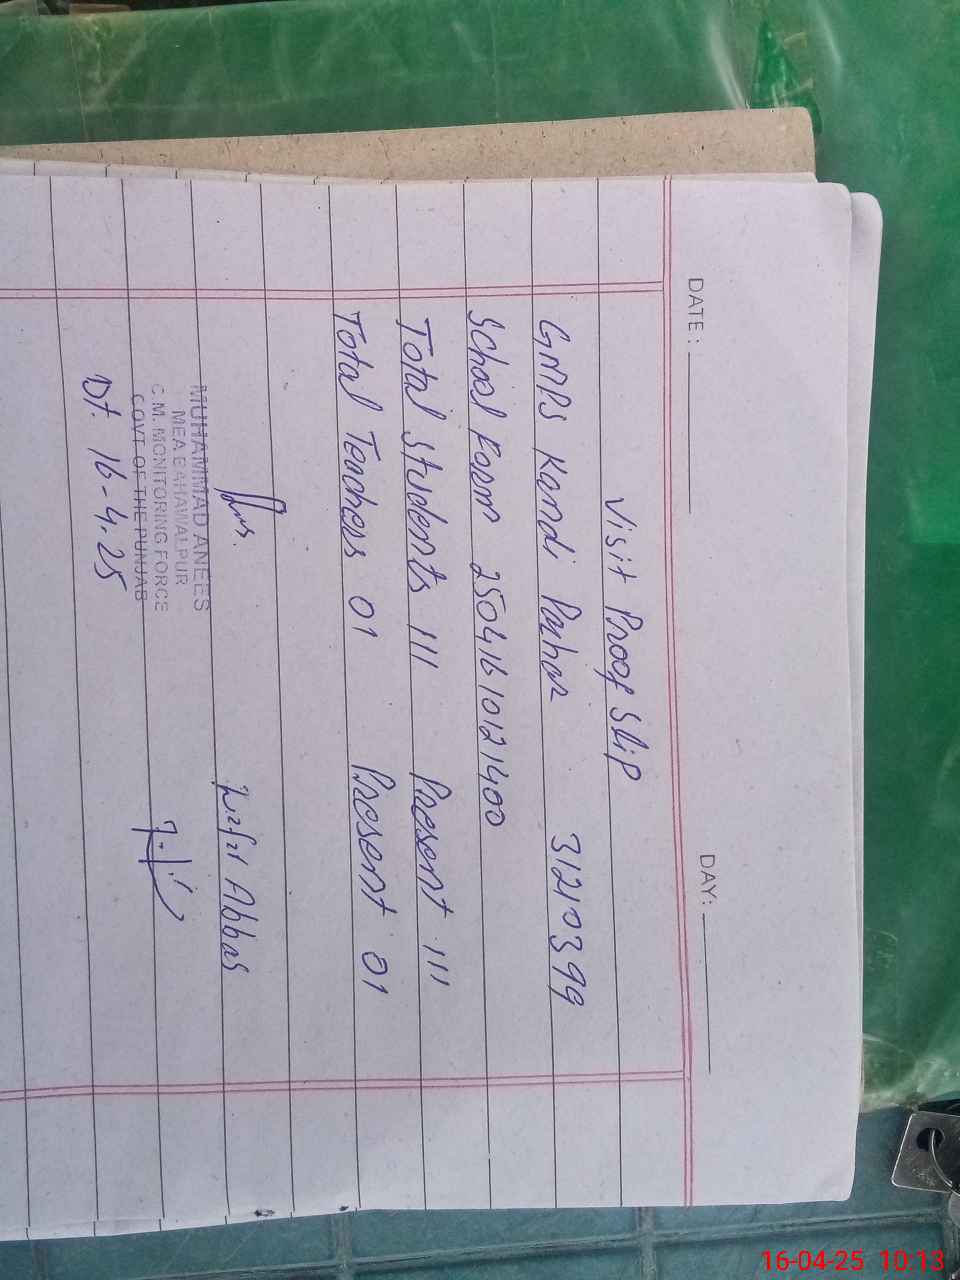 DATE: DAY:
Visit Proof Slip
GMPS Kandi Panhar 31210399
School Form 25041610121400
Total Students 111 Present 111
Total Teachers 01 Present 01
Abbas
MUHAMMAD ANEES
MEA BAHAWALPUR
C.M. MONITORING FORCE
GOVT OF THE PUNJAB
Dt. 16-4.25
16-04-25 10:13